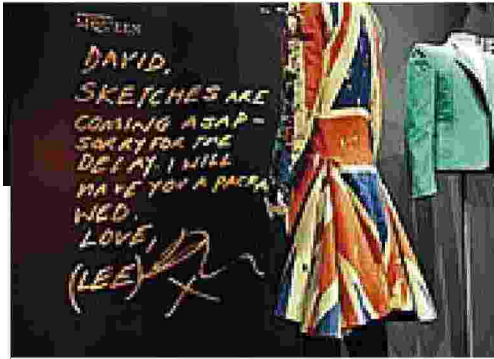 DAVID,
SKETCHES ARE
COMING ASAP -
SORRY FOR THE
DELAY. I WILL
HAVE YOU A
WED.
LOVE,
(LEE) X